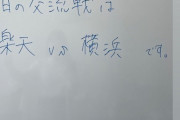 日の交流戦は
楽天 vs 横浜 です。